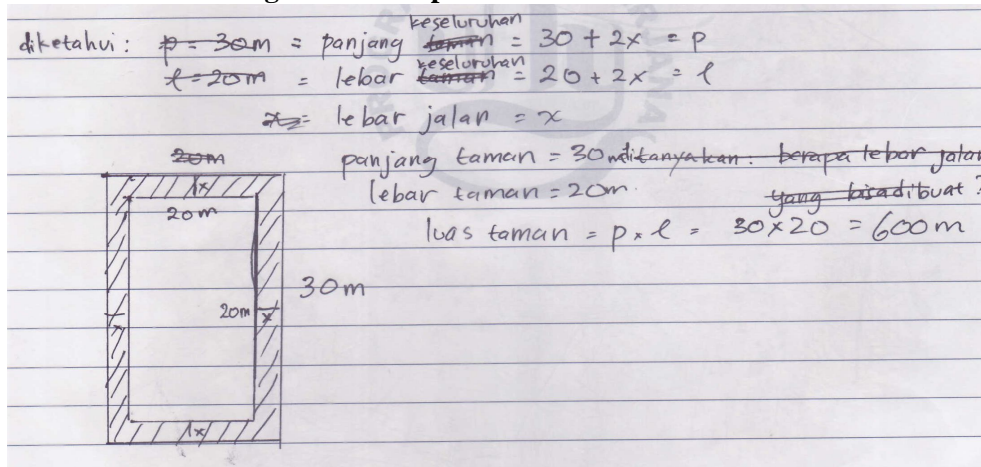 keseluruhan
diketahui : p = 30m = panjang taman = 30 + 2x = p
keseluruhan
l = 20m = lebar taman = 20 + 2x = l
lebar jalan = x
20m
panjang taman = 30m ditanyakan : berapa lebar jalan
lebar taman = 20m. yang bisa dibuat ?
luas taman = p x l = 30 x 20 = 600 m
x
20 m
30 m
20m x
x